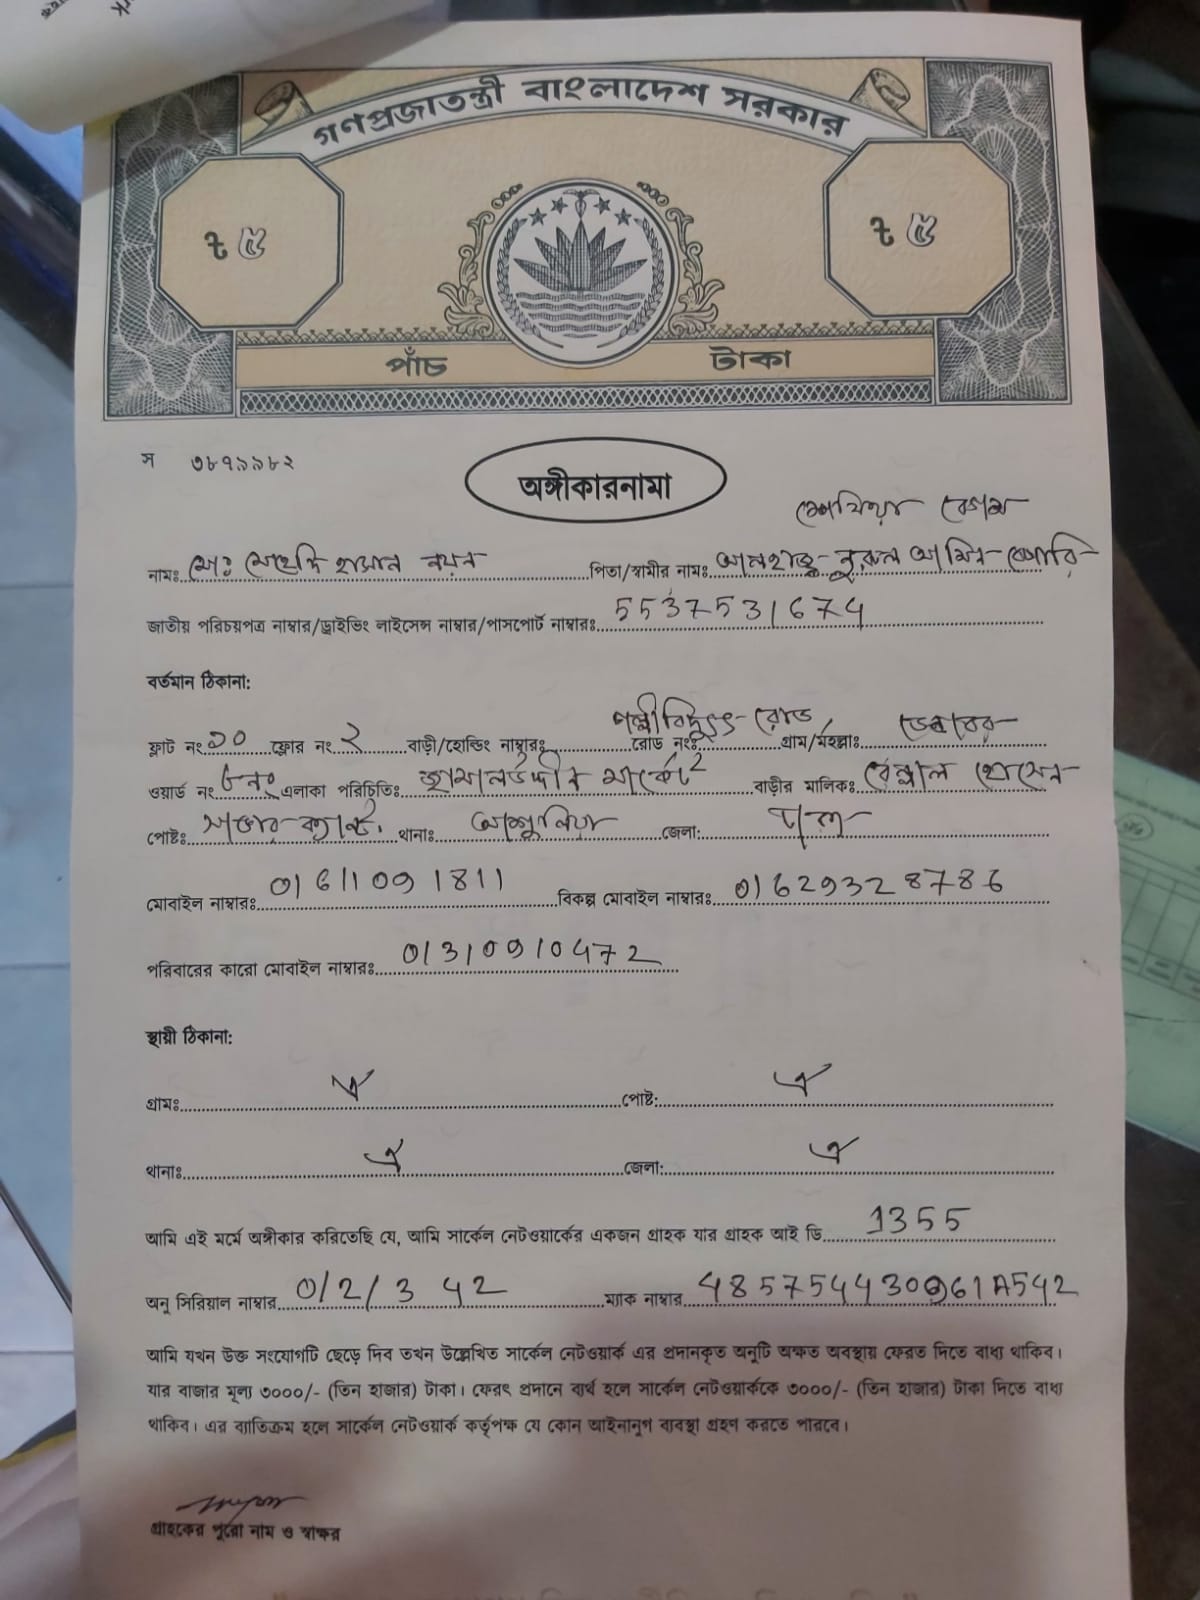 গণপ্রজাতন্ত্রী বাংলাদেশ সরকার
৳ ৫ ৳ ৫
পাঁচ টাকা
স ৩৮৭৯৯৮২
অঙ্গীকারনামা
বেগম
নামঃ মোঃ মেহেদি হাসান নয়ন পিতা/স্বামীর নামঃ আলহাজ্ব নুরুল আমিন
জাতীয় পরিচয়পত্র নাম্বার/ড্রাইভিং লাইসেন্স নাম্বার/পাসপোর্ট নাম্বারঃ 5537531674
বর্তমান ঠিকানা:
পল্লীবিদ্যুৎ রোড
ফ্লাট নং ১০ ফ্লোর নং ২ বাড়ী/হোল্ডিং নাম্বারঃ রোড নংঃ গ্রাম/মহল্লাঃ ডেন্ডাবর
ওয়ার্ড নং ৮নং এলাকা পরিচিতিঃ জামালউদ্দীন মার্কেট বাড়ীর মালিকঃ বেল্লাল হোসেন
পোষ্টঃ সাভার ক্যান্ট. থানাঃ আশুলিয়া জেলা: ঢাকা
মোবাইল নাম্বারঃ 01611091811 বিকল্প মোবাইল নাম্বারঃ 01629328786
পরিবারের কারো মোবাইল নাম্বারঃ 01310910472
স্থায়ী ঠিকানা:
গ্রামঃ ঐ পোষ্ট: ঐ
থানাঃ ঐ জেলা: ঐ
আমি এই মর্মে অঙ্গীকার করিতেছি যে, আমি সার্কেল নেটওয়ার্কের একজন গ্রাহক যার গ্রাহক আই ডি 1355
অনু সিরিয়াল নাম্বার 0/2/3 42 ম্যাক নাম্বার 485754430961A542
আমি যখন উক্ত সংযোগটি ছেড়ে দিব তখন উল্লেখিত সার্কেল নেটওয়ার্ক এর প্রদানকৃত অনুটি অক্ষত অবস্থায় ফেরত দিতে বাধ্য থাকিব।
যার বাজার মূল্য ৩০০০/- (তিন হাজার) টাকা। ফেরৎ প্রদানে ব্যর্থ হলে সার্কেল নেটওয়ার্ককে ৩০০০/- (তিন হাজার) টাকা দিতে বাধ্য
থাকিব। এর ব্যাতিক্রম হলে সার্কেল নেটওয়ার্ক কর্তৃপক্ষ যে কোন আইনানুগ ব্যবস্থা গ্রহণ করতে পারবে।
গ্রাহকের পুরো নাম ও স্বাক্ষর